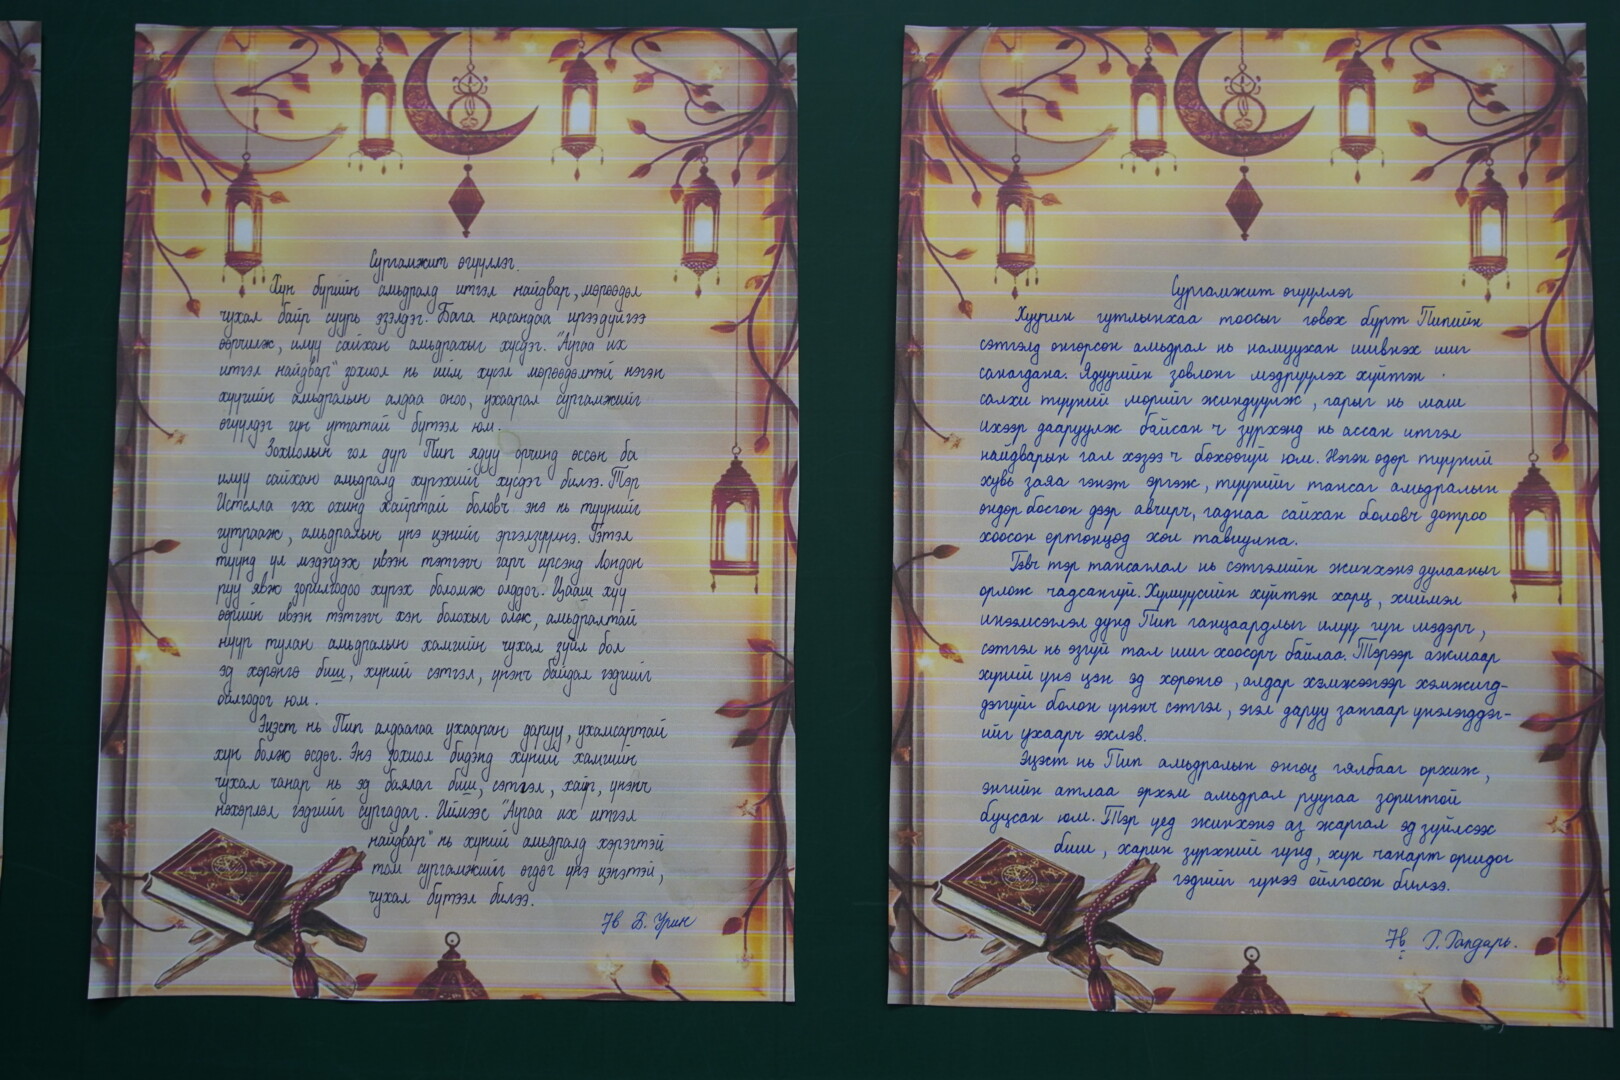 Сургамжит өгүүллэг.
Хүн бүрийн амьдралд итгэл найдвар, мөрөөдөл
чухал байр суурь эзэлдэг. Бага насандаа ирээдүйгээ
өөрчилж, илүү сайхан амьдрахыг хүсдэг. "Аугаа их
итгэл найдвар" зохиол нь ийм хүсэл мөрөөдөлтэй нэгэн
хүүгийн амьдралын алдаа оноо, ухаарал сургамжийг
өгүүлдэг гүн утгатай бүтээл юм.
Зохиолын гол дүр Пип ядуу орчинд өссөн ба
илүү сайхан амьдралд хүрэхийг хүсдэг билээ. Тэр
Истелла гэх охинд хайртай боловч энэ нь түүнийг
гутрааж, амьдралын үнэ цэнийг эргэлзүүлнэ. Гэтэл
түүнд үл мэдэгдэх ивээн тэтгэгч гарч ирсэнд Лондон
руу явж зорилгодоо хүрэх боломж олддог. Цааш хүү
өөрийн ивээн тэтгэгч хэн болохыг олж, амьдралтай
нүүр тулан амьдралын хамгийн чухал зүйл бол
эд хөрөнгө биш, хүний сэтгэл, үнэнч байдал гэдгийг
ойлгодог юм.
Эцэст нь Пип алдаагаа ухааран даруу, ухамсартай
хүн болж өсдөг. Энэ зохиол бидэнд хүний хамгийн
чухал чанар нь эд баялаг биш, сэтгэл, хайр, үнэнч
нөхөрлөл гэдгийг сургадаг. Иймээс "Аугаа их итгэл
найдвар" нь хүний амьдралд хэрэгтэй
том сургамжийг өгдөг үнэ цэнэтэй,
чухал бүтээл билээ.
7в Б. Урин
Сургамжит өгүүллэг
Хуучин гутлынхаа тоосыг гөвөх бүрт Пипийн
сэтгэлд өнгөрсөн амьдрал нь намуухан шивнэх шиг
санагдана. Ядуугийн зовлонг мэдрүүлэх хүйтэн
салхи түүний мөрийг жиндүүлж, гарыг нь маш
ихээр дааруулж байсан ч зүрхэнд нь ассан итгэл
найдварын гал хэзээ ч бөхөөгүй юм. Нэгэн өдөр түүний
хувь заяа гэнэт эргэж, түүнийг тансаг амьдралын
өндөр босгон дээр авчирч, гаднаа сайхан боловч дотроо
хоосон ертөнцөд хөл тавиулна.
Гэвч тэр тансаглал нь сэтгэлийн жинхэнэ дулааныг
орлож чадсангүй. Хүмүүсийн хүйтэн харц, хиймэл
инээмсэглэл дунд Пип ганцаардлыг илүү гүн мэдэрч,
сэтгэл нь эзгүй тал шиг хоосорч байлаа. Тэрээр ажмаар
хүний үнэ цэн эд хөрөнгө, алдар хэмжээгээр хэмжигд-
дэггүй болон үнэнч сэтгэл, эгэл даруу зангаар үнэлэгддэг-
ийг ухаарч эхлэв.
Эцэст нь Пип амьдралын өнгөц гялбааг орхиж,
энгийн атлаа эрхэм амьдрал руугаа зоригтой
буцсан юм. Тэр үед жинхэнэ аз жаргал эд зүйлсээх
биш, харин зүрхний гүнд, хүн чанарт оршдог
гэдгийг гүнээ ойлгосон билээ.
7в Г.Голдарь.